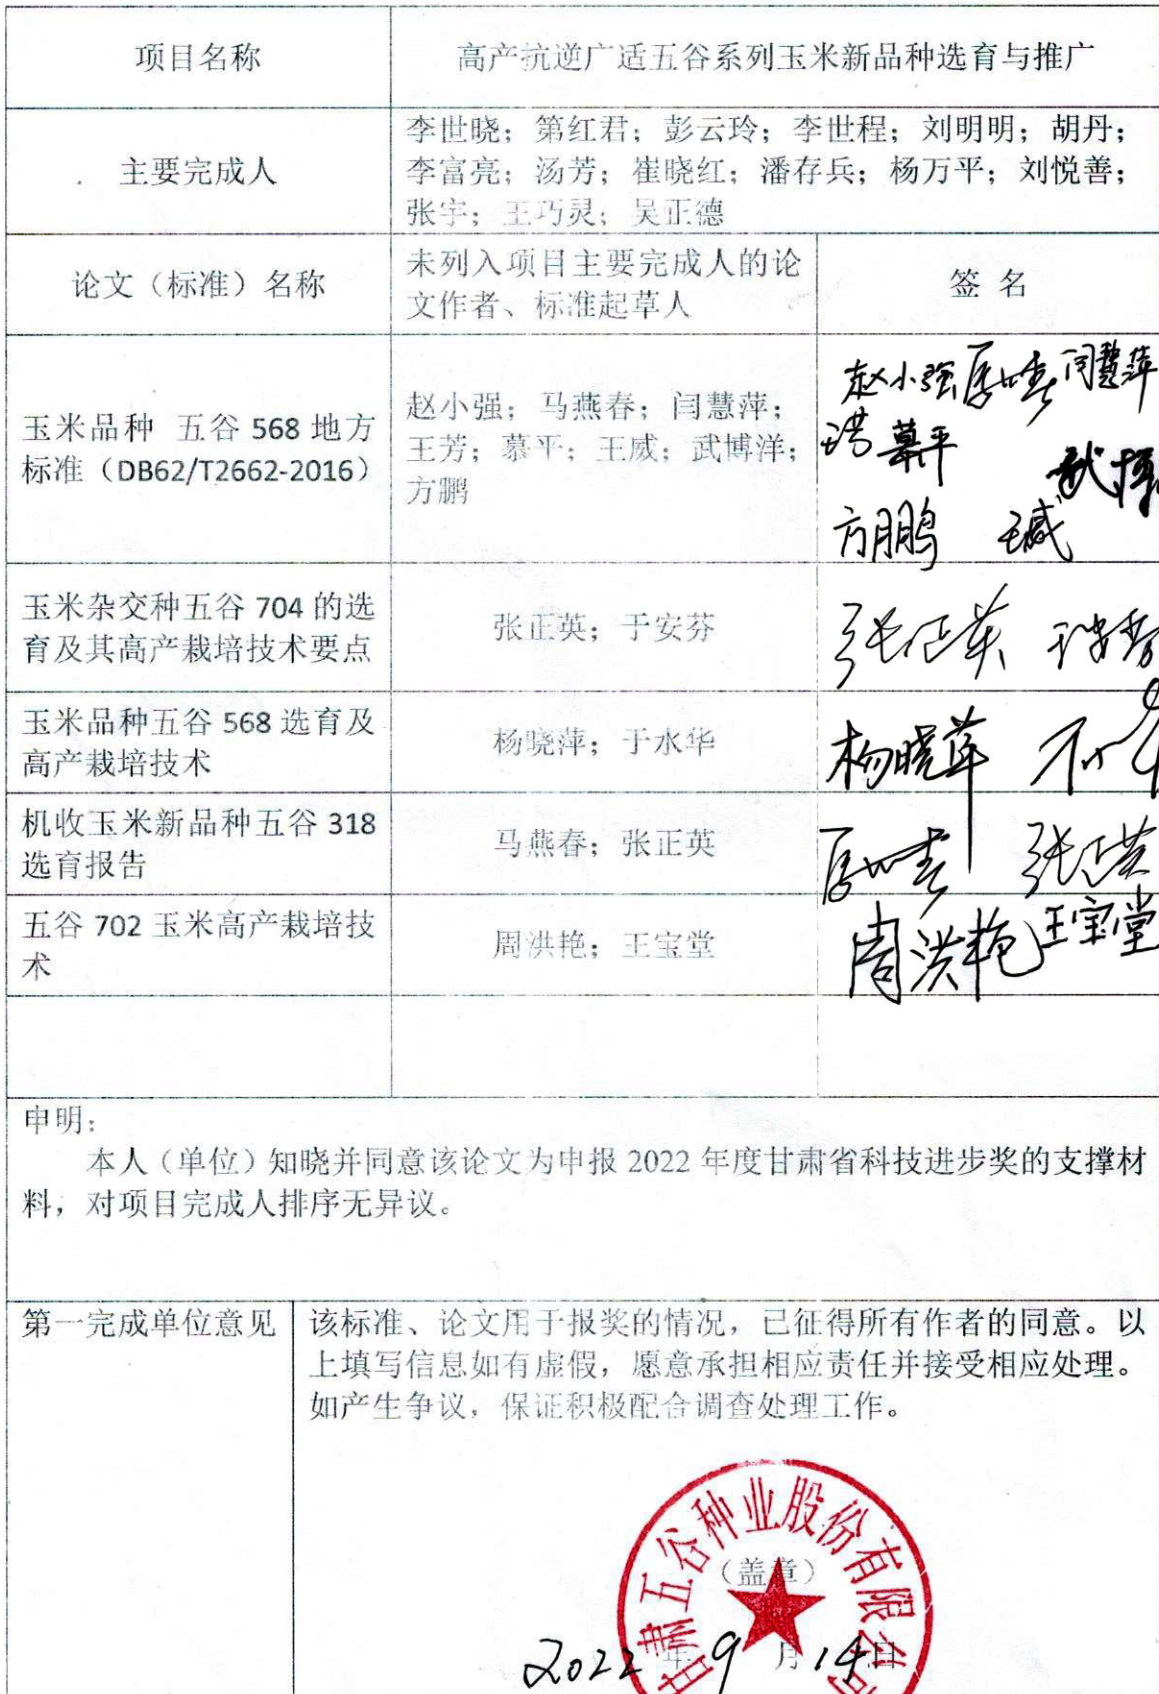 项目名称
高产抗逆广适五谷系列玉米新品种选育与推广
主要完成人
李世晓；第红君；彭云玲；李世程；刘明明；胡丹；
李富亮；汤芳；崔晓红；潘存兵；杨万平；刘悦善；
张宇；王巧灵；吴正德
论文（标准）名称
未列入项目主要完成人的论
文作者、标准起草人
签 名
玉米品种 五谷 568 地方
标准（DB62/T2662-2016）
赵小强；马燕春；闫慧萍；
王芳；慕平；王威；武博洋；
方鹏
赵小强 马燕春 闫慧萍
王芳 慕平
方鹏 王威
玉米杂交种五谷 704 的选
育及其高产栽培技术要点
张正英；于安芬
张正英 于安芬
玉米品种五谷 568 选育及
高产栽培技术
杨晓萍；于水华
杨晓萍
机收玉米新品种五谷 318
选育报告
马燕春；张正英
马燕春 张正英
五谷 702 玉米高产栽培技
术
周洪艳；王宝堂
周洪艳 王宝堂
申明：
本人（单位）知晓并同意该论文为申报 2022 年度甘肃省科技进步奖的支撑材
料，对项目完成人排序无异议。
第一完成单位意见
该标准、论文用于报奖的情况，已征得所有作者的同意。以
上填写信息如有虚假，愿意承担相应责任并接受相应处理。
如产生争议，保证积极配合调查处理工作。
甘肃五谷种业股份有限公司
（盖章）
2022 年 9 月 14 日